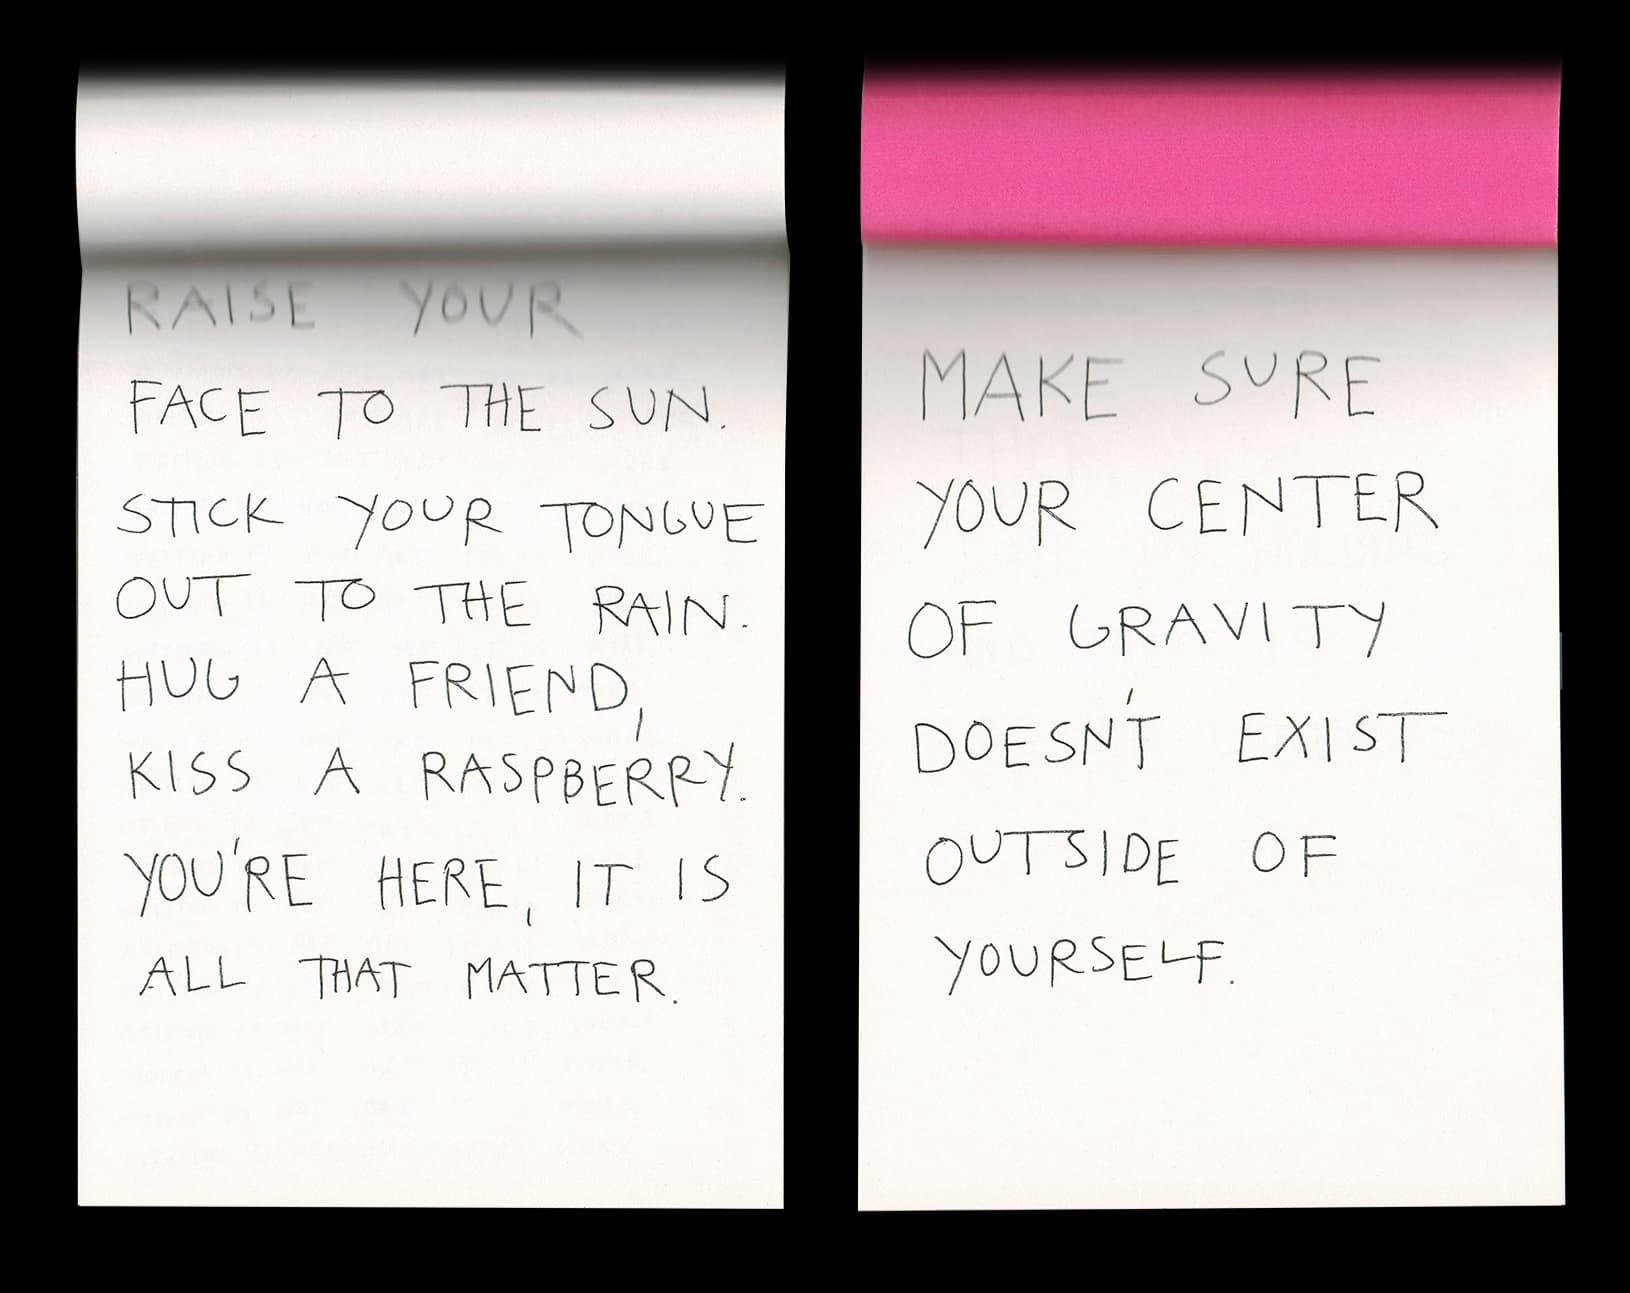 RAISE YOUR
FACE TO THE SUN.
STICK YOUR TONGUE
OUT TO THE RAIN.
HUG A FRIEND,
KISS A RASPBERRY.
YOU'RE HERE, IT IS
ALL THAT MATTER.
MAKE SURE
YOUR CENTER
OF GRAVITY
DOESN'T EXIST
OUTSIDE OF
YOURSELF.